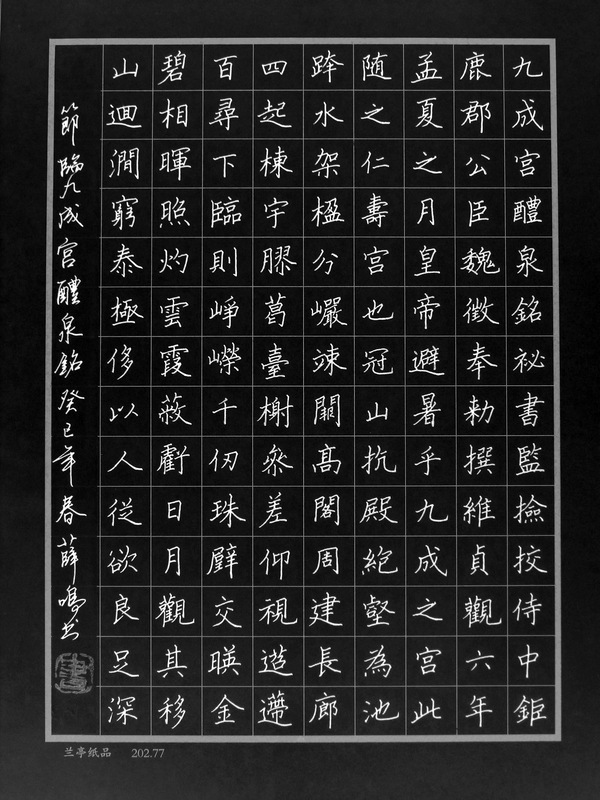 九成宮醴泉銘祕書監撿挍侍中鉅
鹿郡公臣魏徵奉勑撰維貞觀六年
孟夏之月皇帝避暑乎九成之宮此
随之仁壽宮也冠山抗殿絕壑為池
跨水架楹分巗竦闕高閣周建長廊
四起棟宇膠葛臺榭叅差仰視迢遰
百尋下臨則崢嶸千仞珠壁交暎金
碧相暉照灼雲霞蔽虧日月觀其移
山迴澗窮泰極侈以人從欲良足深
節臨九成宮醴泉銘癸巳年春薛鳴书
兰亭纸品 202.77